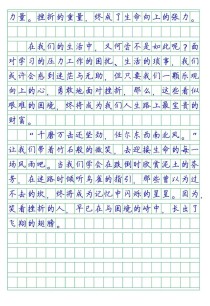 力量。挫折的重量，终成了生命向上的张力。
在我们的生活中，又何尝不是如此呢？面
对学习的压力工作的困扰、生活的琐事，我们
或许会感到迷茫与无助，但只要我们一颗乐观
向上的心，勇敢地面对挫折，那么，这些看似
艰难的困境，终将成为我们人生路上最宝贵的
财富。
“千磨万击还坚劲，任尔东西南北风。”
让我们带着竹石般的微笑，去迎接生命的每一
场风雨吧。当我们学会在跌倒时欣赏泥土的芬
芳，在迷路时倾听鸟雀的指引，那些曾以为过
不去的坎，终将成为记忆中闪烁的星星。因为，
笑着挫折的人，早已在与困境的对峙中，长出了
飞翔的翅膀。